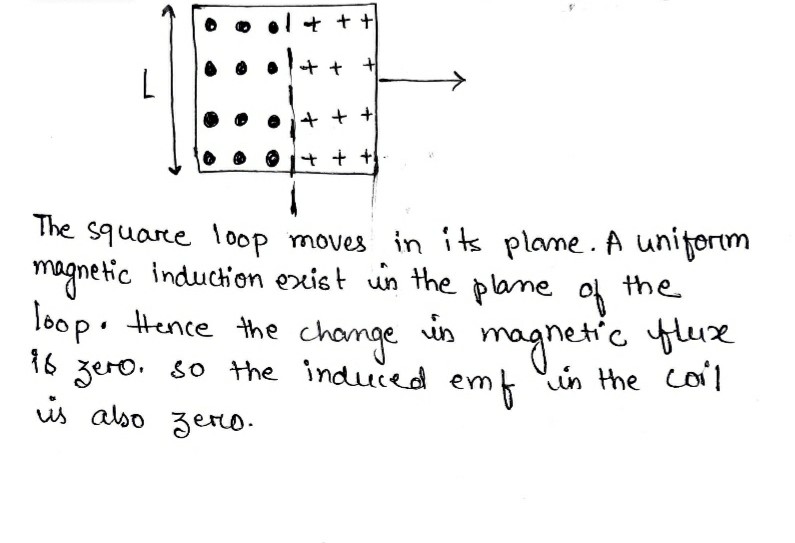 L
The square loop moves in its plane. A uniform
magnetic induction exist in the plane of the
loop. Hence the change in magnetic flux
is zero. so the induced emf in the coil
is also zero.